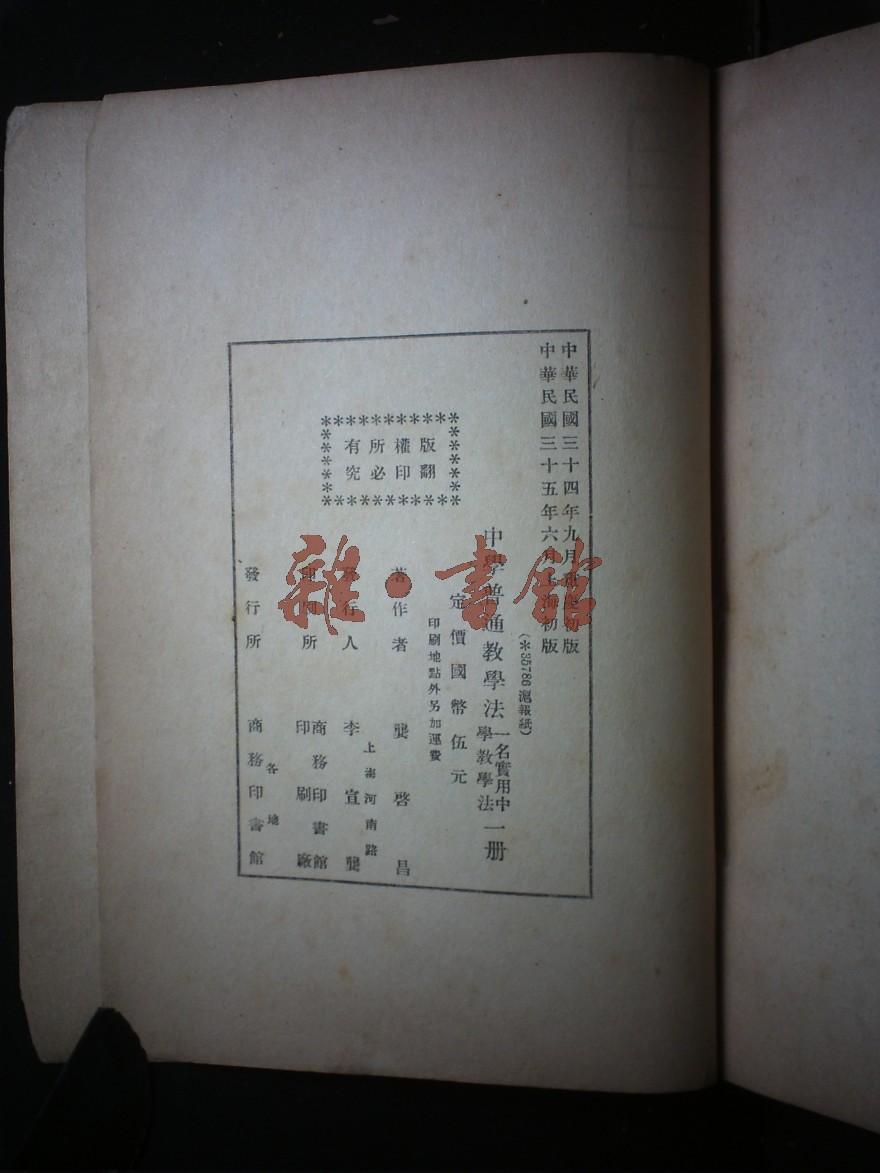 中華民國三十四年九月重慶初版
中華民國三十五年六月上海初版
(*35786滬報紙)
中學普通教學法 一名實用中學教學法 一册
定價國幣伍元
印刷地點外另加運費
版權所有
翻印必究
著作者 龔啓昌
發行人 李宣龔
上海河南路
印刷所 商務印書館印刷廠
發行所 商務印書館
各地
雜·書館